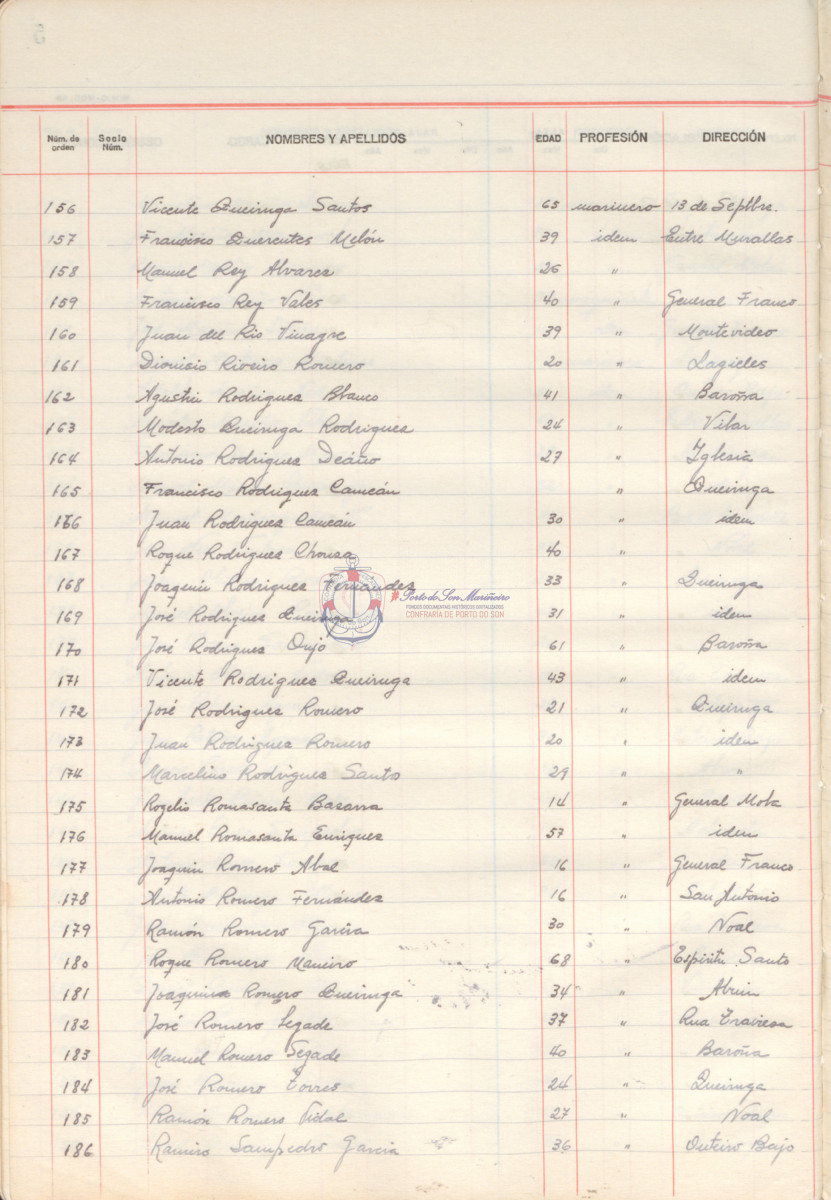 Núm. de orden Socio Núm. NOMBRES Y APELLIDOS EDAD PROFESIÓN DIRECCIÓN
156 Vicente Queiruga Santos 65 marinero 13 de Septbre.
157 Francisco Querentes Melón 39 idem Entre Murallas
158 Manuel Rey Alvarez 26 "
159 Francisco Rey Vales 40 " General Franco
160 Juan del Río Vinagre 39 " Montevideo
161 Dionisio Rioeiro Romero 20 "
162 Agustín Rodriguez Blanco 41 " Baroña
163 Modesto Queiruga Rodriguez 24 " Vilar
164 Antonio Rodriguez Deáño 27 " Iglesia
165 Francisco Rodriguez Cameán " Queiruga
166 Juan Rodriguez Cameán 30 " idem
167 Roque Rodriguez Chouza 40 "
168 Joaquin Rodriguez Fernandez 33 " Queiruga
169 José Rodriguez Queiruga 31 " idem
170 José Rodriguez Oujo 61 " Baroña
171 Vicente Rodriguez Queiruga 43 " idem
172 José Rodriguez Romero 21 " Queiruga
173 Juan Rodriguez Romero 20 " idem
174 Marcelino Rodriguez Santo 29 " "
175 Rogelio Romasanta Basarra 14 " General Mola
176 Manuel Romasanta Enriquez 57 " idem
177 Joaquin Romero Abal 16 " General Franco
178 Antonio Romero Fernández 16 " San Antonio
179 Ramón Romero Garcia 30 " Noal
180 Roque Romero Maneiro 68 " Espiritu Santo
181 Romero Queiruga 34 "
182 José Romero Segade 37 " Rua Traviesa
183 Manuel Romero Segade 40 " Baroña
184 José Romero Torres 24 " Queiruga
185 Ramón Romero Vidal 27 " Noal
186 Ramiro Sampedro Garcia 36 " Outeiro Bajo
#Porto do Son Mariñeiro
FONDOS DOCUMENTAIS HISTÓRICOS DIXITALIZADOS
CONFRARÍA DE PORTO DO SON